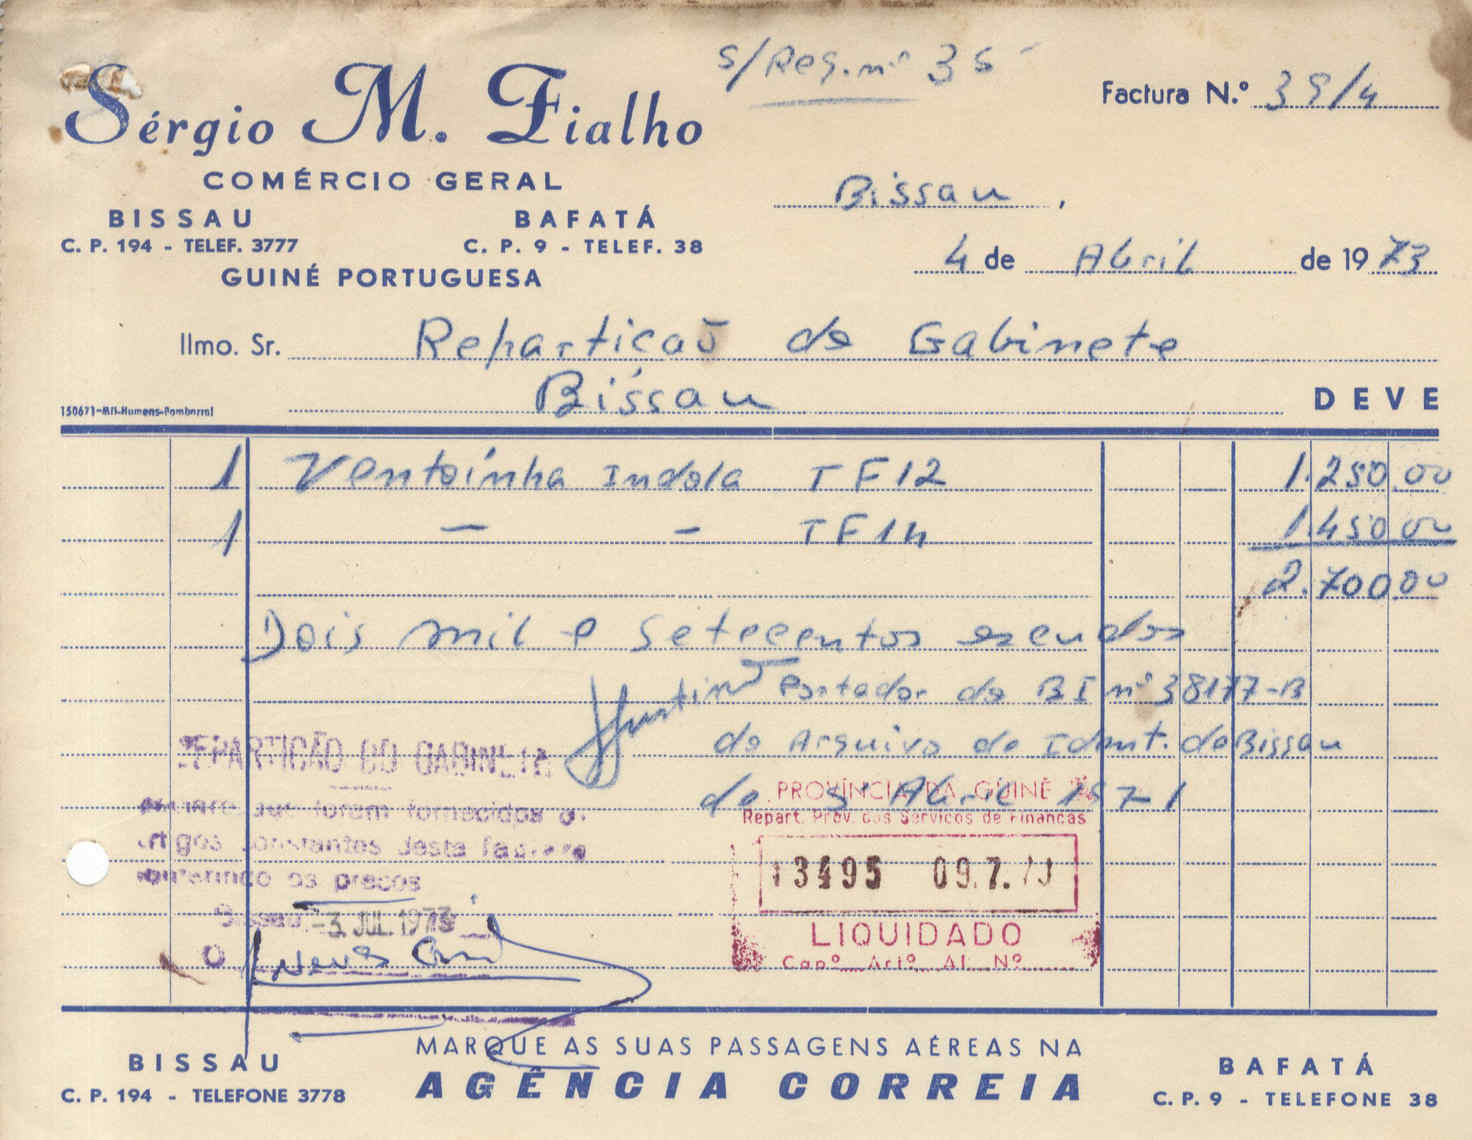 S/Reg. nº 35
Sérgio M. Fialho
Factura N.º 39/4
COMÉRCIO GERAL
BISSAU
BAFATÁ
C. P. 194 - TELEF. 3777
C. P. 9 - TELEF. 38
GUINÉ PORTUGUESA
Bissau,
4 de Abril de 1973
Ilmo. Sr. Repartição do Gabinete
Bissau
DEVE
1 Ventoinha Indola TF12 1.250,00
1 — — TF14 1.450,00
2.700,00
Dois mil e setecentos escudos
Portador do BI nº 38177-B
do Arquivo de Ident. de Bissau
de Abril 1971
REPARTIÇÃO DO GABINETE
que foram fornecidos os
artigos constantes desta factura
conferindo os preços
Bissau -3. JUL. 1973
O
PROVÍNCIA DA GUINÉ
Repart. Prov. dos Serviços de Finanças
13495 09.7.73
LIQUIDADO
Capº Artº Al. Nº
MARQUE AS SUAS PASSAGENS AÉREAS NA
AGÊNCIA CORREIA
BISSAU
C. P. 194 - TELEFONE 3778
BAFATÁ
C. P. 9 - TELEFONE 38